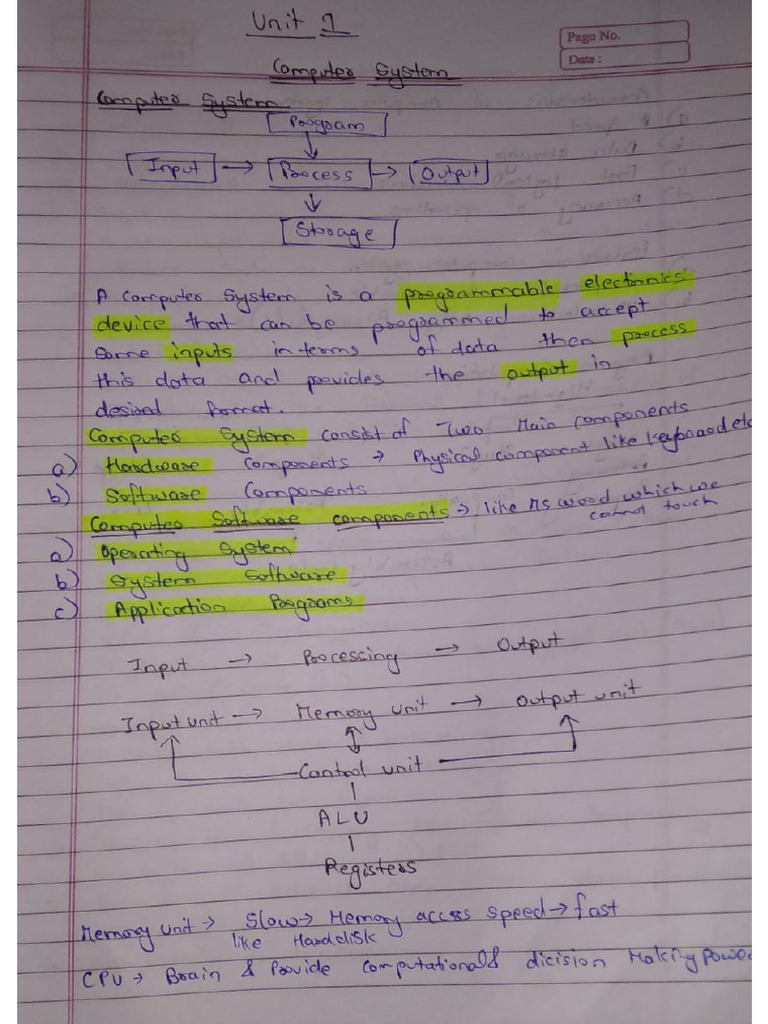 Unit 1
Page No.
Date :
Computer System
Computer System
Program
Input → Process → Output
Storage
A Computer System is a programmable electronics
device that can be programmed to accept
some inputs in terms of data then process
this data and provides the output in
desired format.
Computer System consist of Two Main components
a) Hardware components → Physical component like keyboard etc
b) Software Components
Computer Software components → like MS word which we
cannot touch
a) Operating System
b) System Software
c) Application Programs
Input → Processing → Output
Input unit → Memory unit → Output unit
Control unit
ALU
Registers
Memory unit → Slow → Memory access speed → fast
like Harddisk
CPU → Brain & Provide Computational & dicision Making power